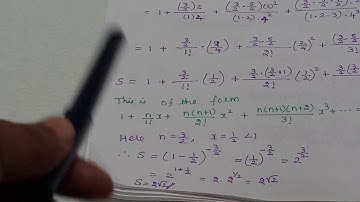 = 1 + (3/2)2/(1)4 + (3/2 · 5/2)2²/(1·2)·4² +
= 1 + 3/2/1! · (2/4) + 3/2 · 5/2/2! (2/4)² +
S = 1 + 3/2/1! (1/2) + 3/2 · (3/2+1)/2! (1/2)² +
This is of the form
1 + n/1! x + n(n+1)/2! x² + n(n+1)(n+2)/3! x³ + ...
Here n = 3/2, x = 1/2 < 1
∴ S = (1 - 1/2)^(-3/2) = (1/2)^(-3/2) = 2^(3/2)
= 2^(1+1/2) = 2 · 2^(1/2) = 2√2
S = 2√2